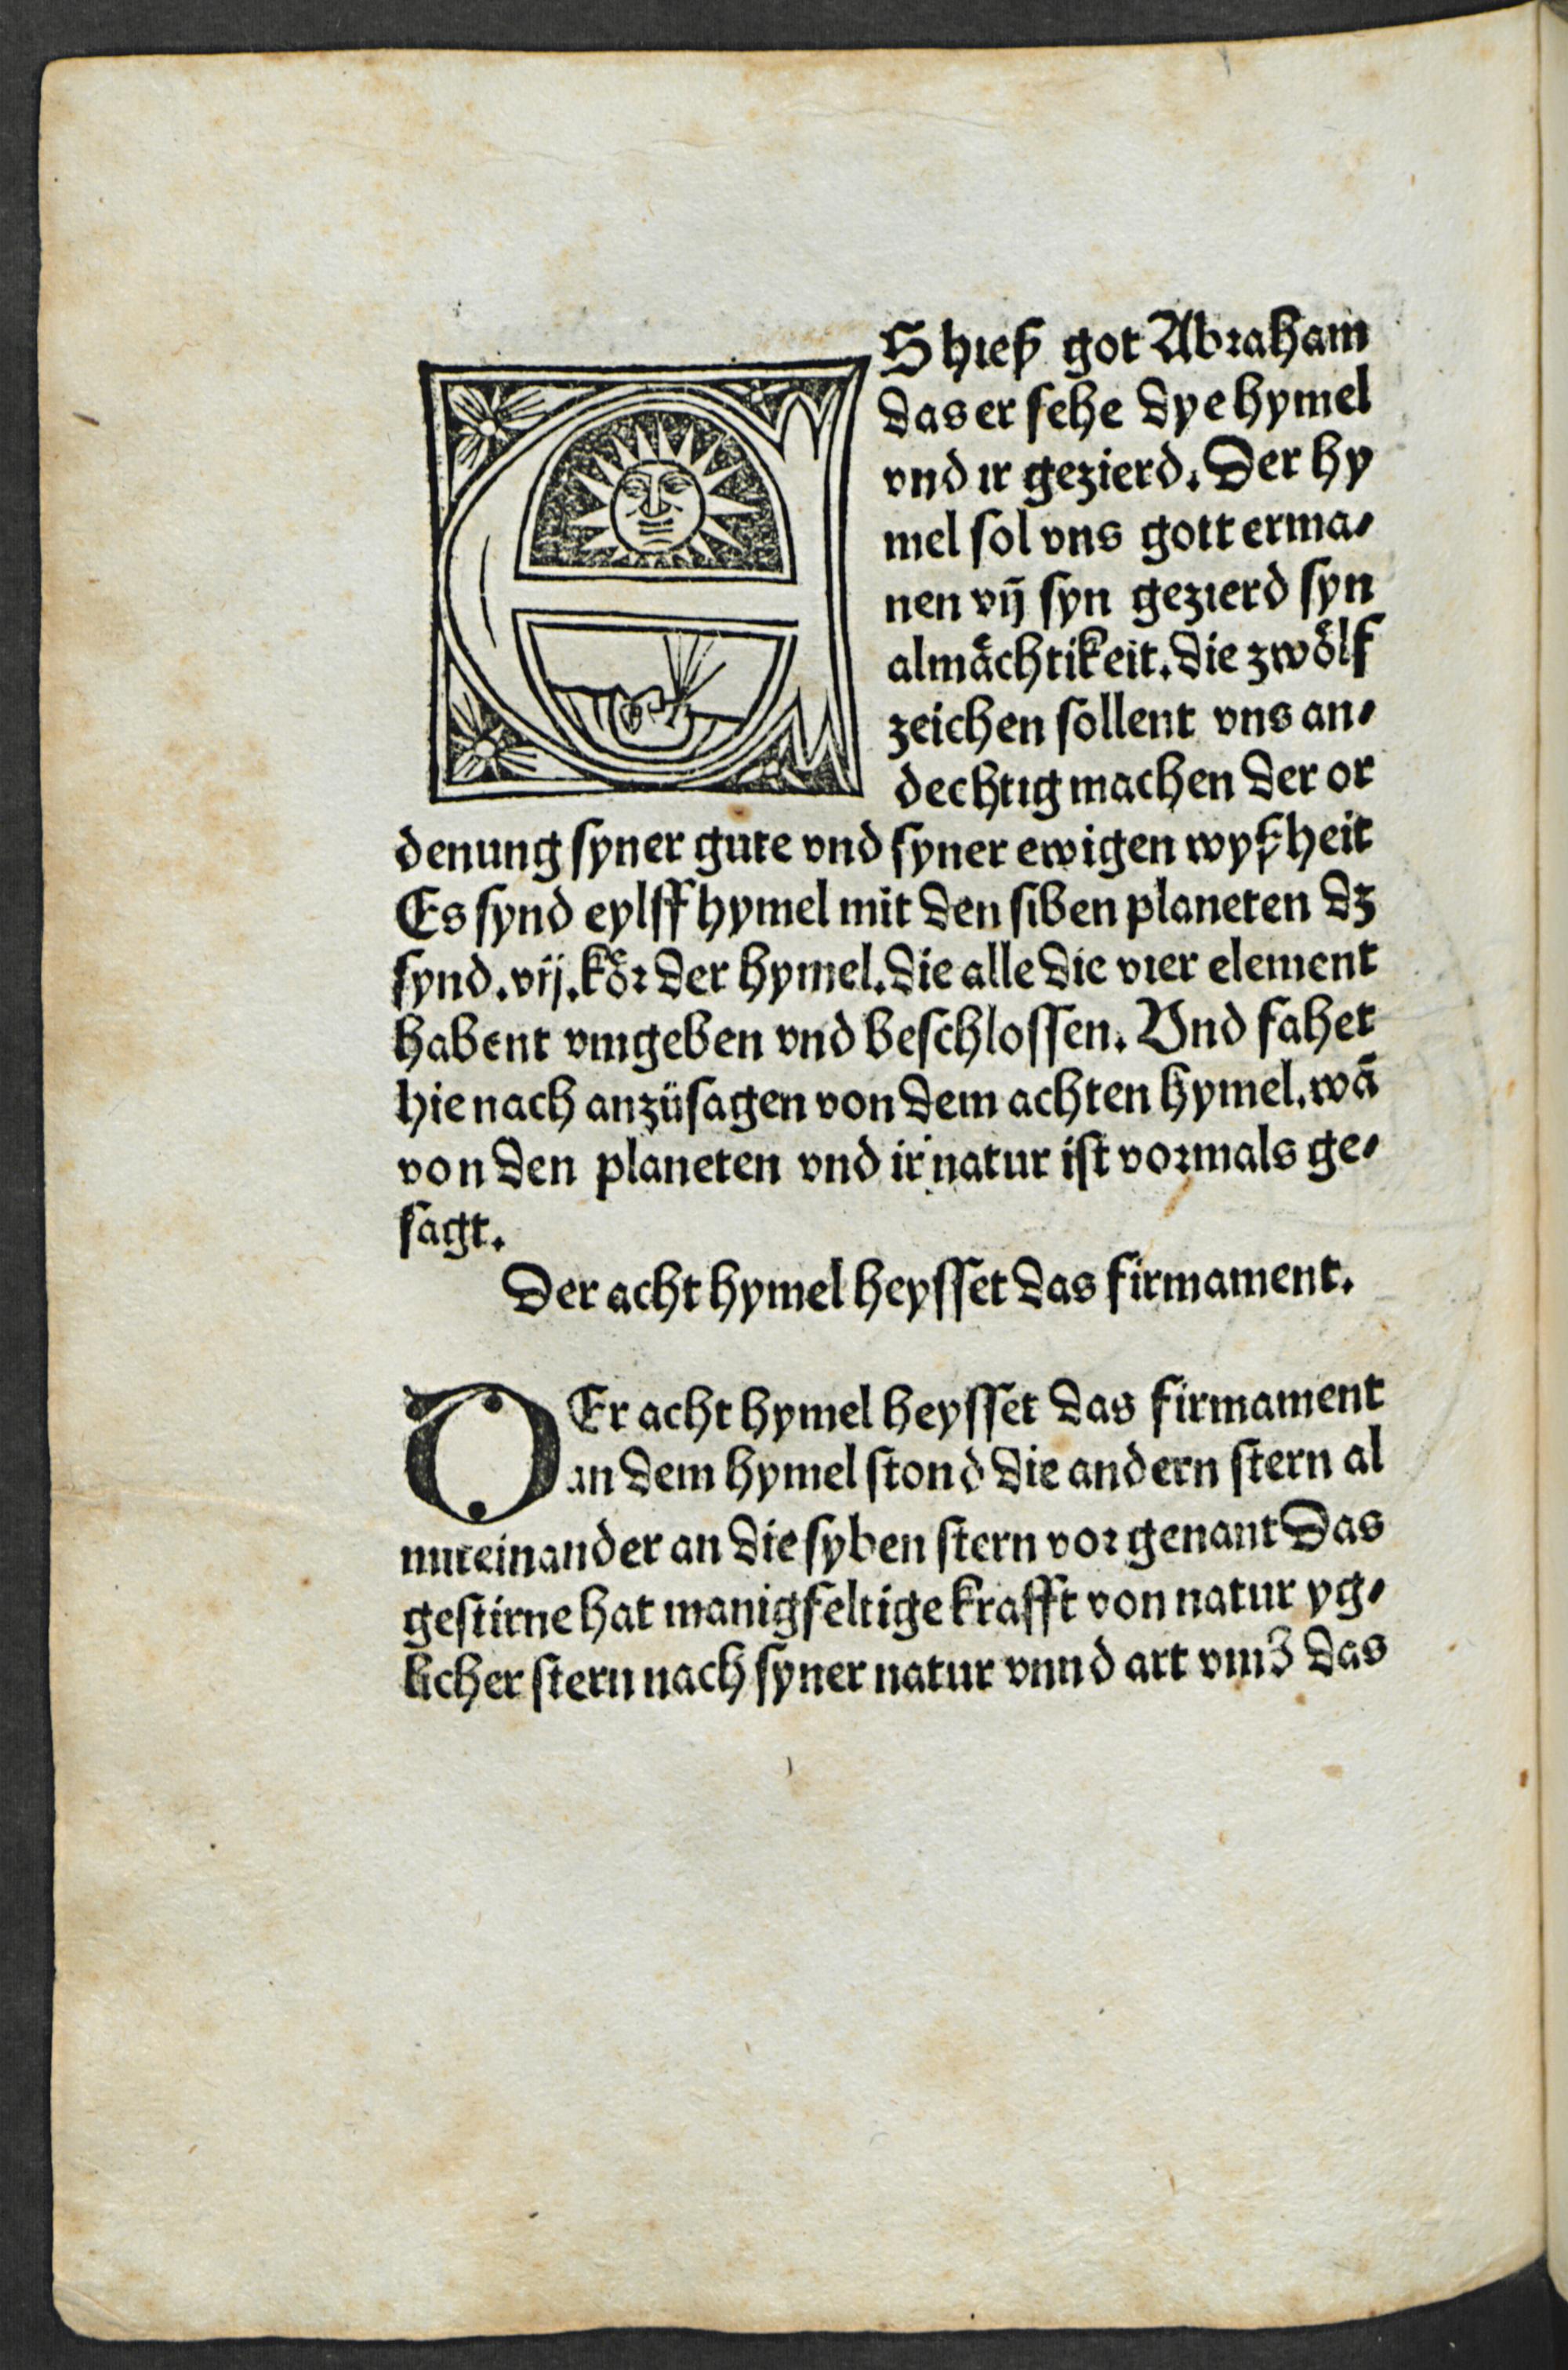 ES hieß got Abraham
das er sehe dye hymel
vnd ir gezierd. Der hy
mel sol vns gott erma⸗
nen vñ syn gezierd syn
almaͤchtikeit. die zwoͤlf
zeichen sollent vns an⸗
dechtig machen der or
denung syner gute vnd syner ewigen wyßheit
Es synd eylff hymel mit den siben planeten dz
synd .vij. koͤr der hymel. die alle die vier element
habent vmgeben vnd beschlossen. Vnd fahet
hie nach anzüsagen von dem achten hymel. wā
von den planeten vnd ir natur ist vormals ge⸗
sagt.
Der acht hymel heysset das firmament.
DEr acht hymel heysset das firmament
an dem hymel stond die andern stern al
miteinander an die syben stern vor genant Das
gestirne hat manigfeltige krafft von natur yg⸗
licher stern nach syner natur vnnd art vmz das